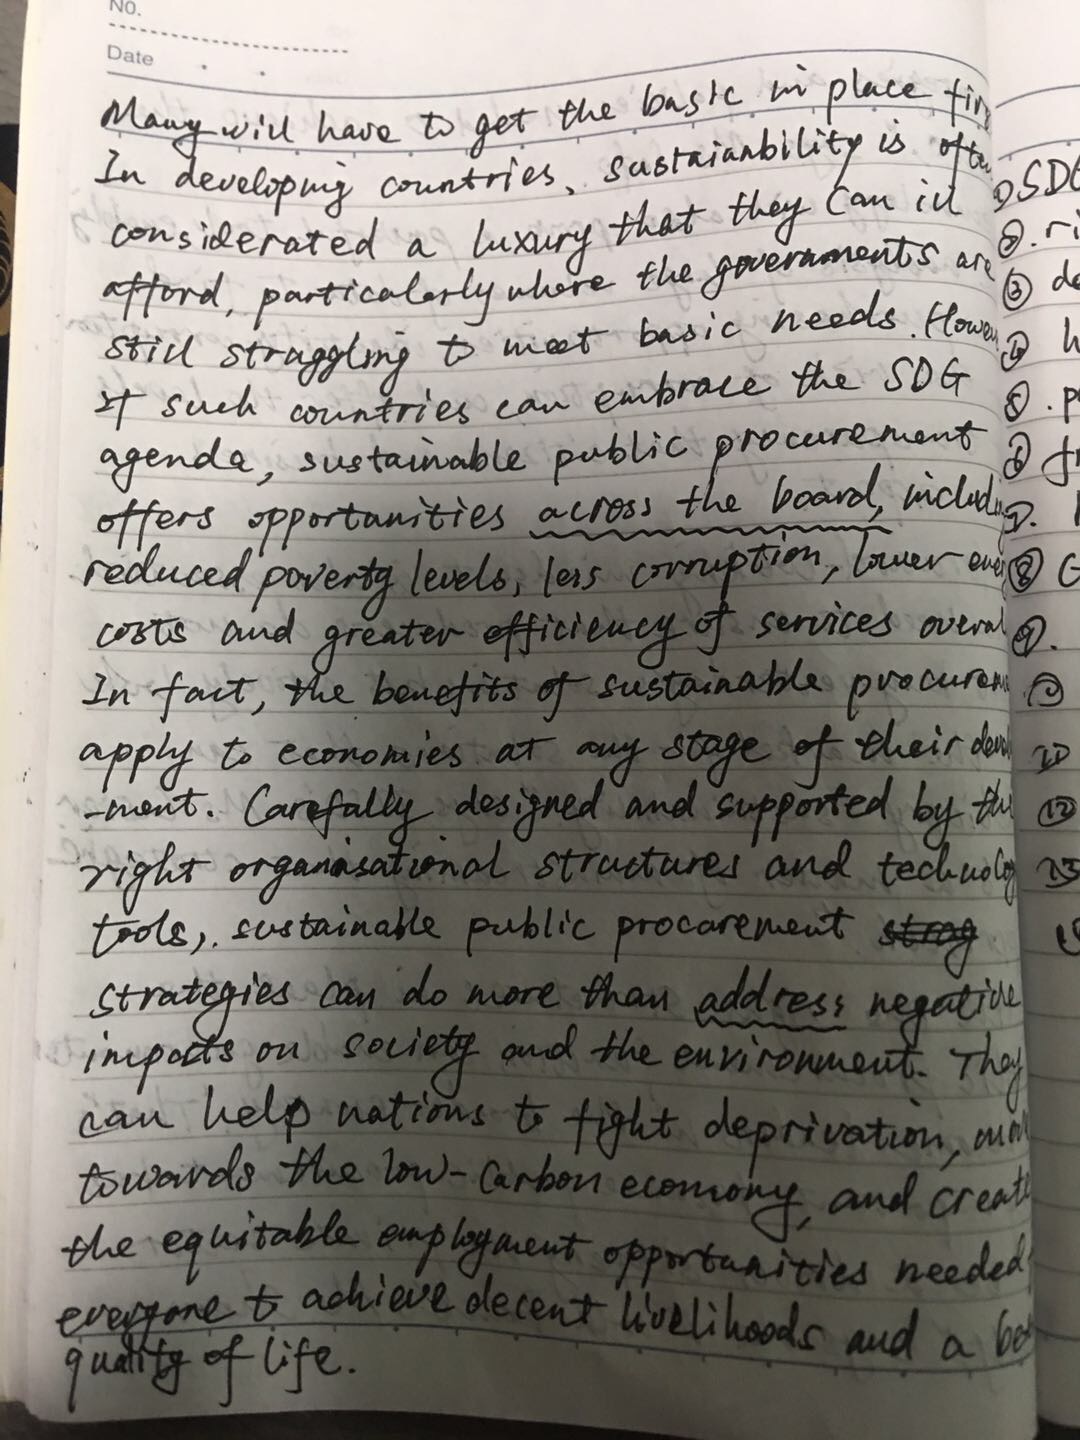 No.
Date
Many will have to get the basic in place fir
In developing countries, sustaianbility is ofte
considerated a luxury that they can ill
afford, particularly where the governments are
still struggling to meet basic needs. Howev
If such countries can embrace the SDG
agenda, sustainable public procurement
offers opportunities across the board, includ
reduced poverty levels, less corruption, lower ener
costs and greater efficiency of services overal
In fact, the benefits of sustainable procurem
apply to economies at any stage of their devel
-ment. Carefully designed and supported by the
right organisational structures and technolog
tools, sustainable public procurement strag
strategies can do more than address negative
impacts on society and the environment. They
can help nations to fight deprivation, mov
towards the low-carbon economy, and create
the equitable employment opportunities needed
everyone to achieve decent livelihoods and a bet
quality of life.
① SDG
②. ri
③ de
④ h
⑤. p
⑥ fr
⑦.
⑧ G
⑨.
⑩
⑪
⑫
⑬